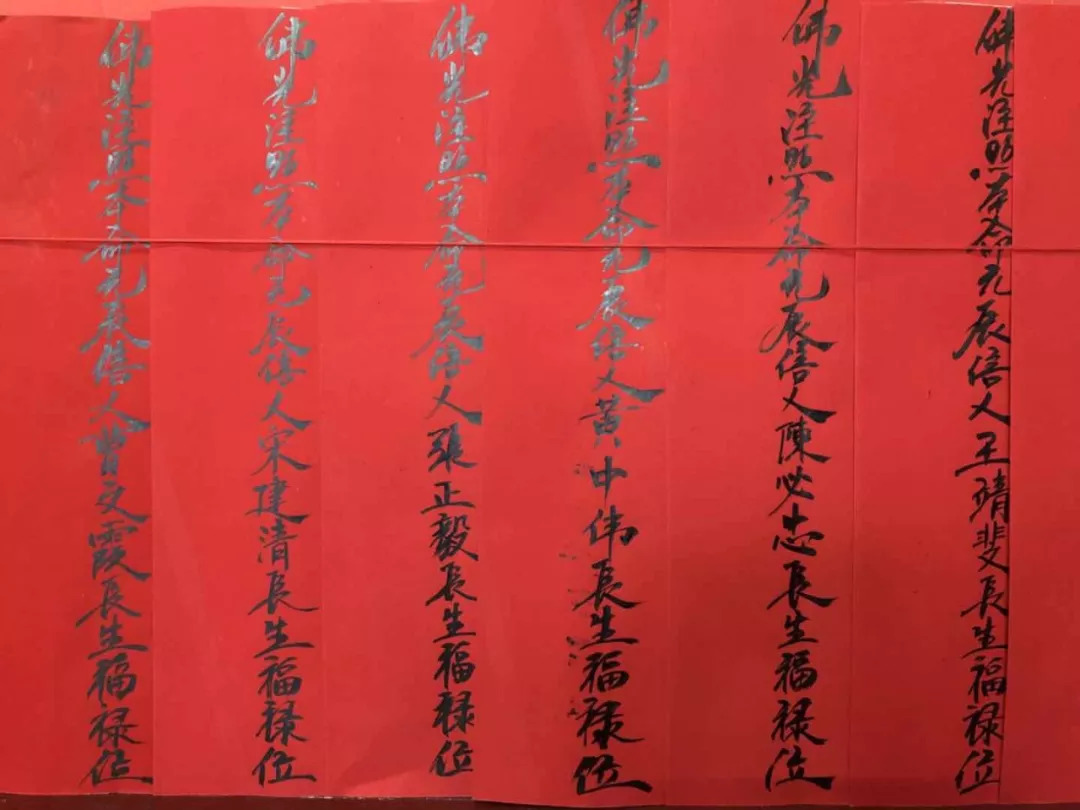 佛光注照本命元辰信人王靖斐長生福禄位
佛光注照本命元辰信人陳必志長生福禄位
佛光注照本命元辰信人黄中伟長生福禄位
佛光注照本命元辰信人張正毅長生福禄位
佛光注照本命元辰信人宋建清長生福禄位
佛光注照本命元辰信人曹文霞長生福禄位